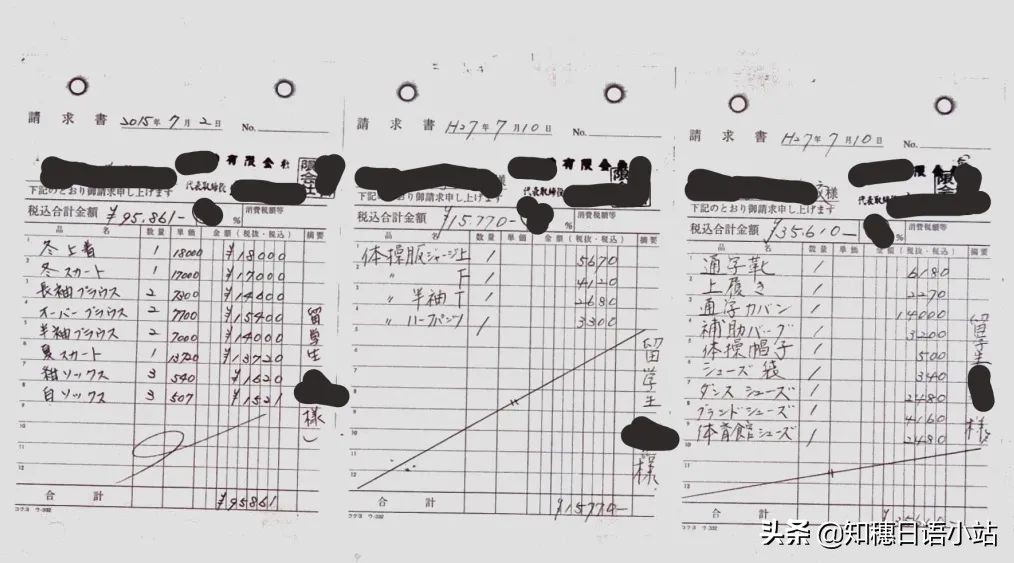 請求書 2015年7月2日 No.
有限会社
代表取締役
下記のとおり御請求申し上げます
税込合計金額 ¥95.861- % 消費税額等
品名 数量 単価 金額(税抜・税込) 摘要
1 冬上着 1 18000 ¥18000
2 冬スカート 1 17000 ¥17000
3 長袖ブラウス 2 7300 ¥14600
4 オーバーブラウス 2 7700 ¥15400
5 半袖ブラウス 2 7000 ¥14000
6 夏スカート 1 13720 ¥13720
7 紺ソックス 3 540 ¥1620
8 白ソックス 3 507 ¥1521
9
10
11
12
留学生 様
合計 ¥95861
コクヨ ウ-332
請求書 H27年7月10日 No.
有限会
代表取締役
様
下記のとおり御請求申し上げます
税込合計金額 ¥15.770- % 消費税額等
品名 数量 単価 金額(税抜・税込) 摘要
1 体操服ジャージ上 1 5670
2 〃 下 1 4120
3 〃 半袖T 1 2680
4 〃 ハーフパンツ 1 3300
5
6
7
8
9
10
11
12
留学生 様
合計 ¥15770-
コクヨ ウ-332
請求書 H27年7月10日 No.
有限会
代表取締役
様
下記のとおり御請求申し上げます
税込合計金額 ¥35.610- % 消費税額等
品名 数量 単価 金額(税抜・税込) 摘要
1 通学靴 1 6180
2 上履き 1 2270
3 通学カバン 1 14000
4 補助バッグ 1 3200
5 体操帽子 1 500
6 シューズ袋 1 340
7 ダンスシューズ 1 2480
8 グランドシューズ 1 4160
9 体育館シューズ 1 2480
10
11
12
留学生 様
合計 ¥35610
コクヨ ウ-332
头条 @知穗日语小站